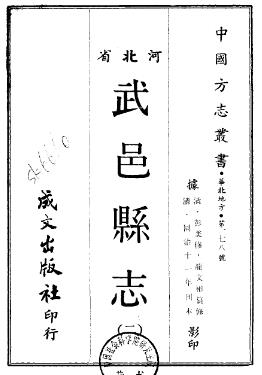 中國方志叢書•華北地方•第一七八號
據
清•彭美修•龍文彬纂修
清•同治十一年刊本
影印
河北省
武邑縣志
(一)
成文出版社印行